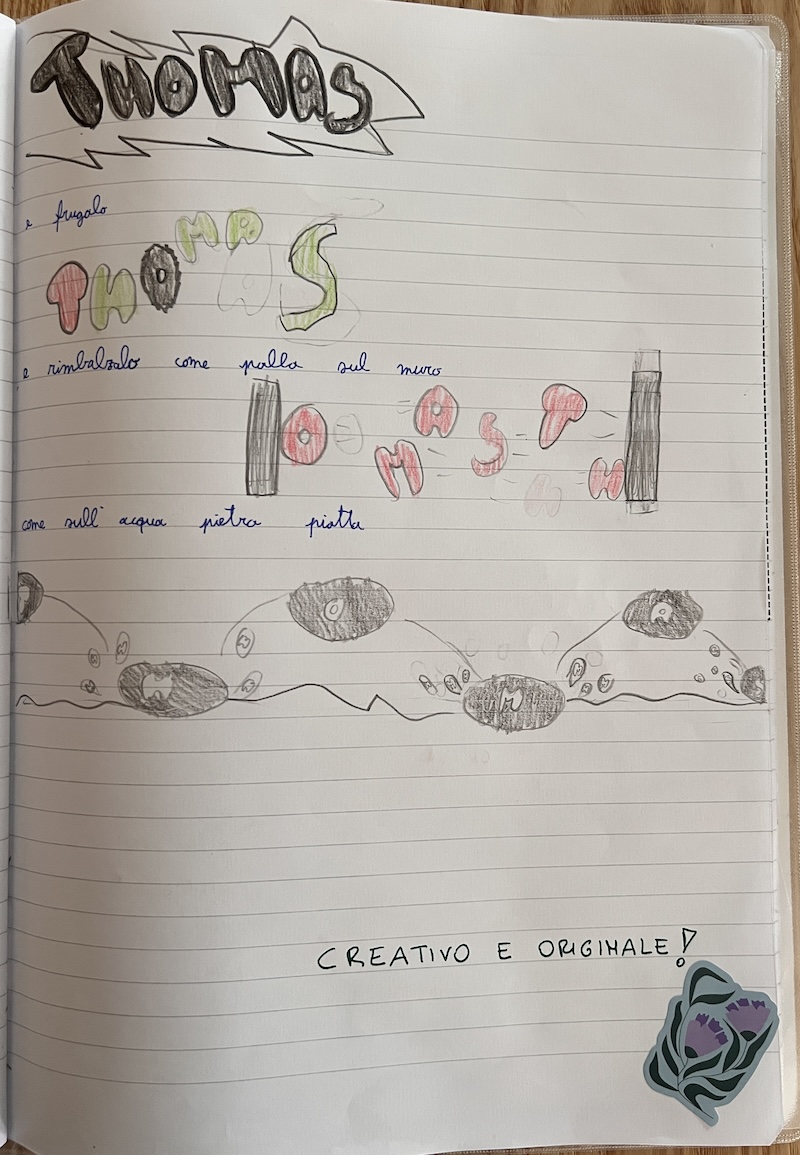 THOMAS
e frugalo
THOMAS
e rimbalzalo come palla sul muro
O M A S T H
come sull' acqua pietra piatta
T H O M A S
CREATIVO E ORIGINALE!